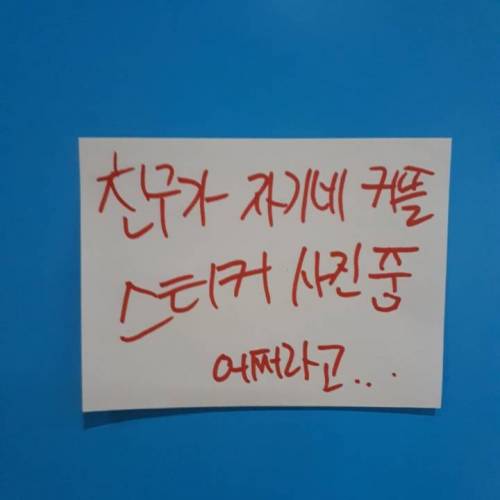 친구가 자기네 커플
스티커 사진 줌
어쩌라고...